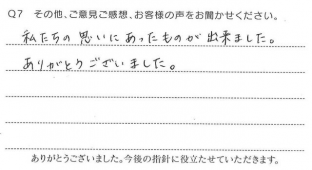 Q7 その他、ご意見ご感想、お客様の声をお聞かせください。
私たちの思いにあったものが出来ました。
ありがとうございました。
ありがとうございました。今後の指針に役立たせていただきます。